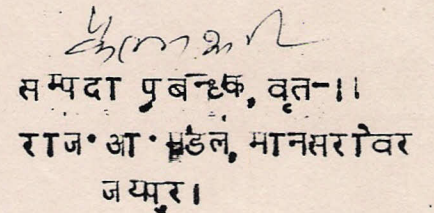 सम्पदा प्रबन्धक, वृत-।।
राज॰ आ॰ मंडल, मानसरोवर
जयपुर।